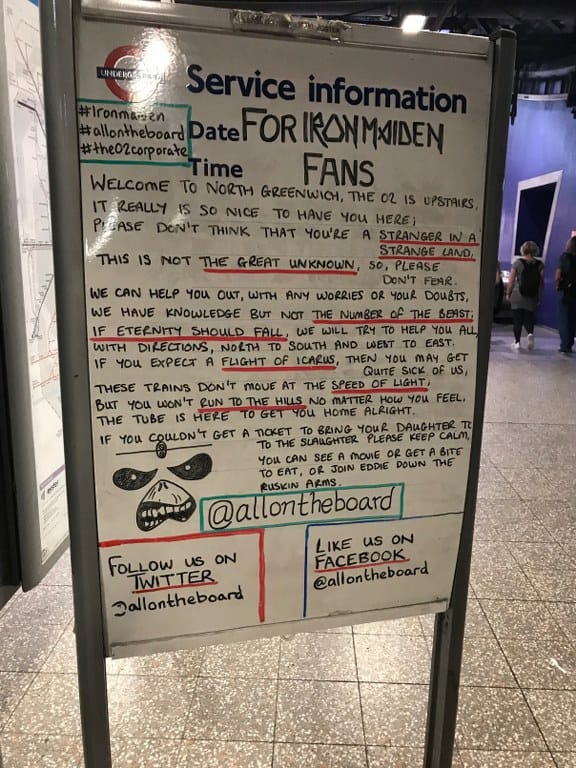 UNDERGROUND
#Ironmaiden
#allontheboard
#theO2corporate
Service information
Date FOR IRON MAIDEN
Time FANS
WELCOME TO NORTH GREENWICH, THE O2 IS UPSTAIRS,
IT REALLY IS SO NICE TO HAVE YOU HERE;
PLEASE DON'T THINK THAT YOU'RE A STRANGER IN A
STRANGE LAND,
THIS IS NOT THE GREAT UNKNOWN, SO, PLEASE
DON'T FEAR.
WE CAN HELP YOU OUT, WITH ANY WORRIES OR YOUR DOUBTS,
WE HAVE KNOWLEDGE BUT NOT THE NUMBER OF THE BEAST;
IF ETERNITY SHOULD FALL, WE WILL TRY TO HELP YOU ALL,
WITH DIRECTIONS, NORTH TO SOUTH AND WEST TO EAST.
IF YOU EXPECT A FLIGHT OF ICARUS, THEN YOU MAY GET
QUITE SICK OF US,
THESE TRAINS DON'T MOVE AT THE SPEED OF LIGHT;
BUT YOU WON'T RUN TO THE HILLS NO MATTER HOW YOU FEEL,
THE TUBE IS HERE TO GET YOU HOME ALRIGHT.
IF YOU COULDN'T GET A TICKET TO BRING YOUR DAUGHTER TO
TO THE SLAUGHTER PLEASE KEEP CALM,
YOU CAN SEE A MOVIE OR GET A BITE
TO EAT, OR JOIN EDDIE DOWN THE
RUSKIN ARMS.
@allontheboard
FOLLOW US ON
TWITTER
@allontheboard
LIKE US ON
FACEBOOK
@allontheboard